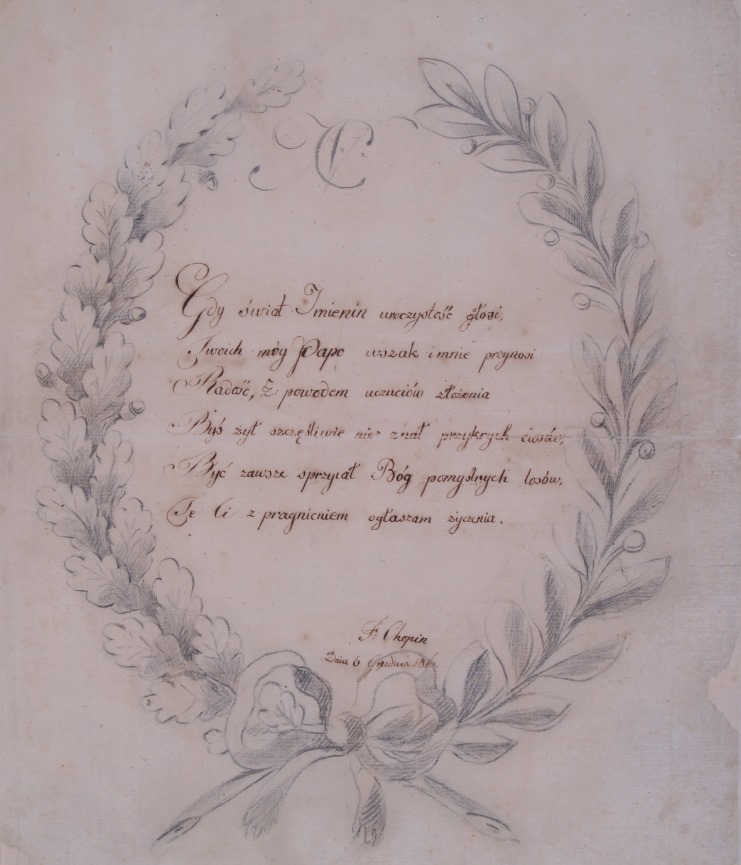 C
Gdy świat Imienin uroczystość głosi,
Twoich móy Papo wszak i mnie przynosi
Radość, z powodem uczuciów złożenia
Byś żył szczęśliwie nie znał przykrych ciosów,
Być zawsze sprzyiał Bóg pomyślnych losów,
Te Ci z pragnieniem ogłaszam życzenia.
F: Chopin
Dnia 6 Grudnia